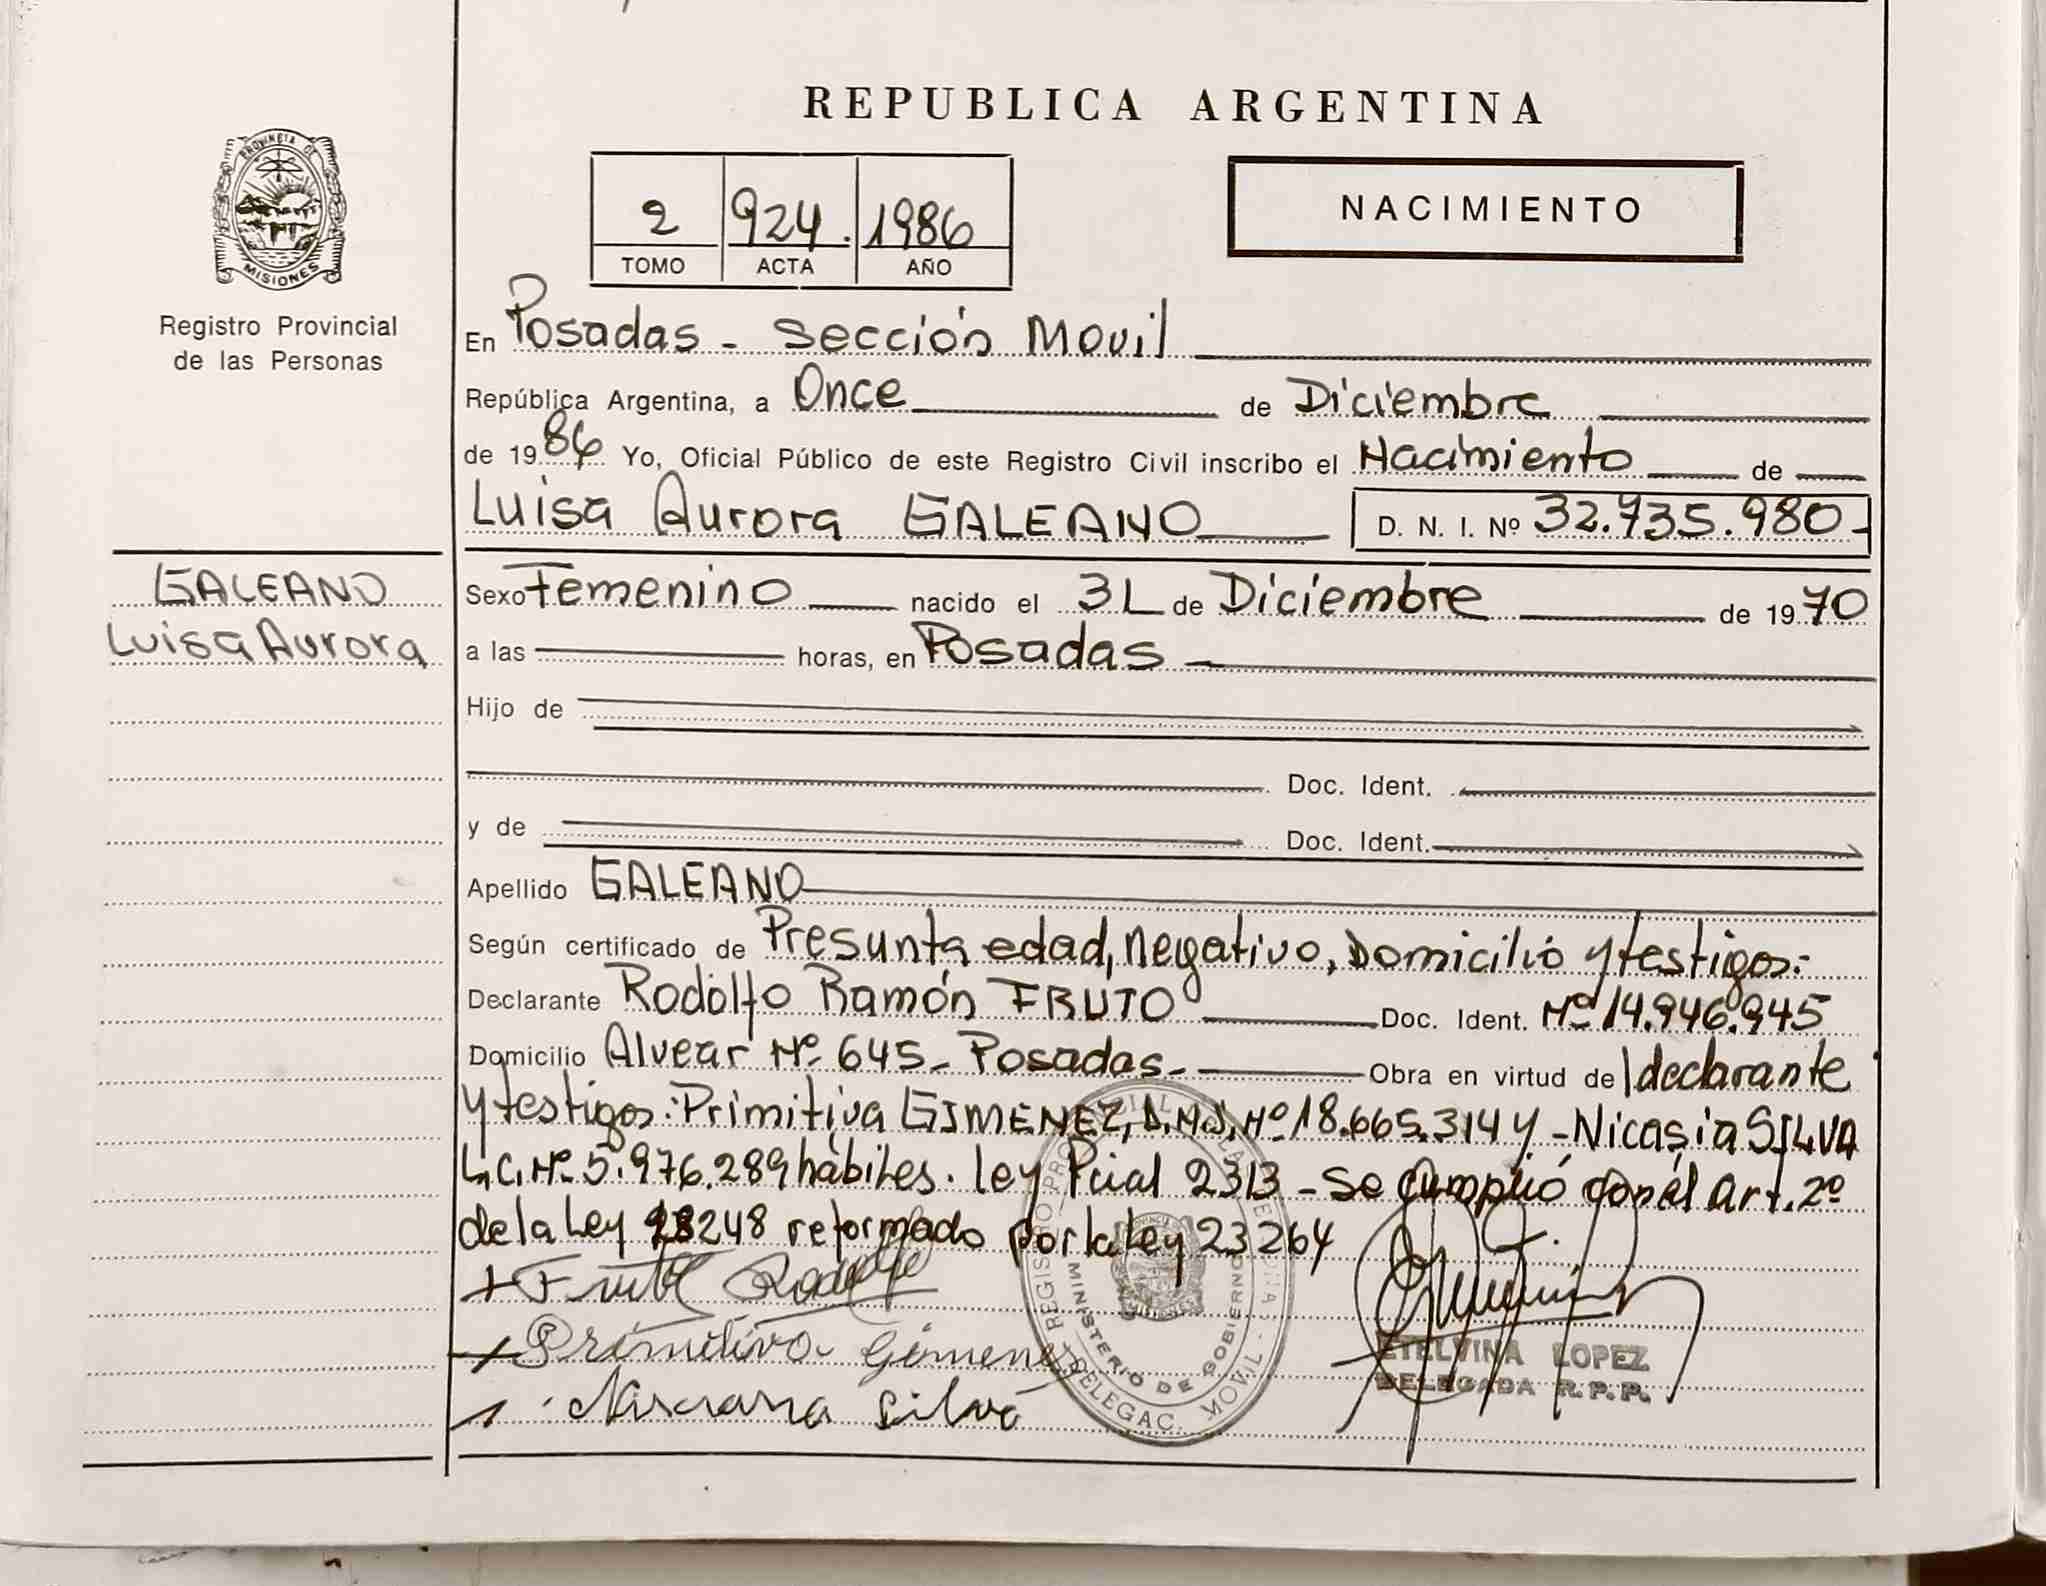 REPUBLICA ARGENTINA
PROVINCIA DE
MISIONES
Registro Provincial
de las Personas
2 924. 1986
TOMO ACTA AÑO
NACIMIENTO
En Posadas - Sección Movil
República Argentina, a Once de Diciembre
de 1986 Yo, Oficial Público de este Registro Civil inscribo el Nacimiento de
Luisa Aurora GALEANO D. N. I. Nº 32.735.980-
GALEANO
Luisa Aurora
Sexo Femenino nacido el 31 de Diciembre de 1970
a las horas, en Posadas
Hijo de
Doc. Ident.
y de Doc. Ident.
Apellido GALEANO
Según certificado de Presunta edad, negativo, Domicilio y testigos:-
Declarante Rodolfo Ramón FRUTO Doc. Ident. Nº 14.946.945
Domicilio Alvear Nº 645- Posadas- Obra en virtud de declarante
y testigos: Primitiva GIMENEZ, D.N.I. Nº 18.665.314 y - Nicasia SILVA
L.C. Nº 5.976.289 hábiles. Ley Pcial 2313 - Se cumplió con el Art. 2º
de la Ley 18248 reformado por la Ley 23264
Rodolfo
Primitiva Gimenez
Silva
REGISTRO PROVINCIAL DE LAS PERSONAS
MINISTERIO DE GOBIERNO
DELEGAC. MOVIL
ETELVINA LOPEZ
DELEGADA R.P.P.